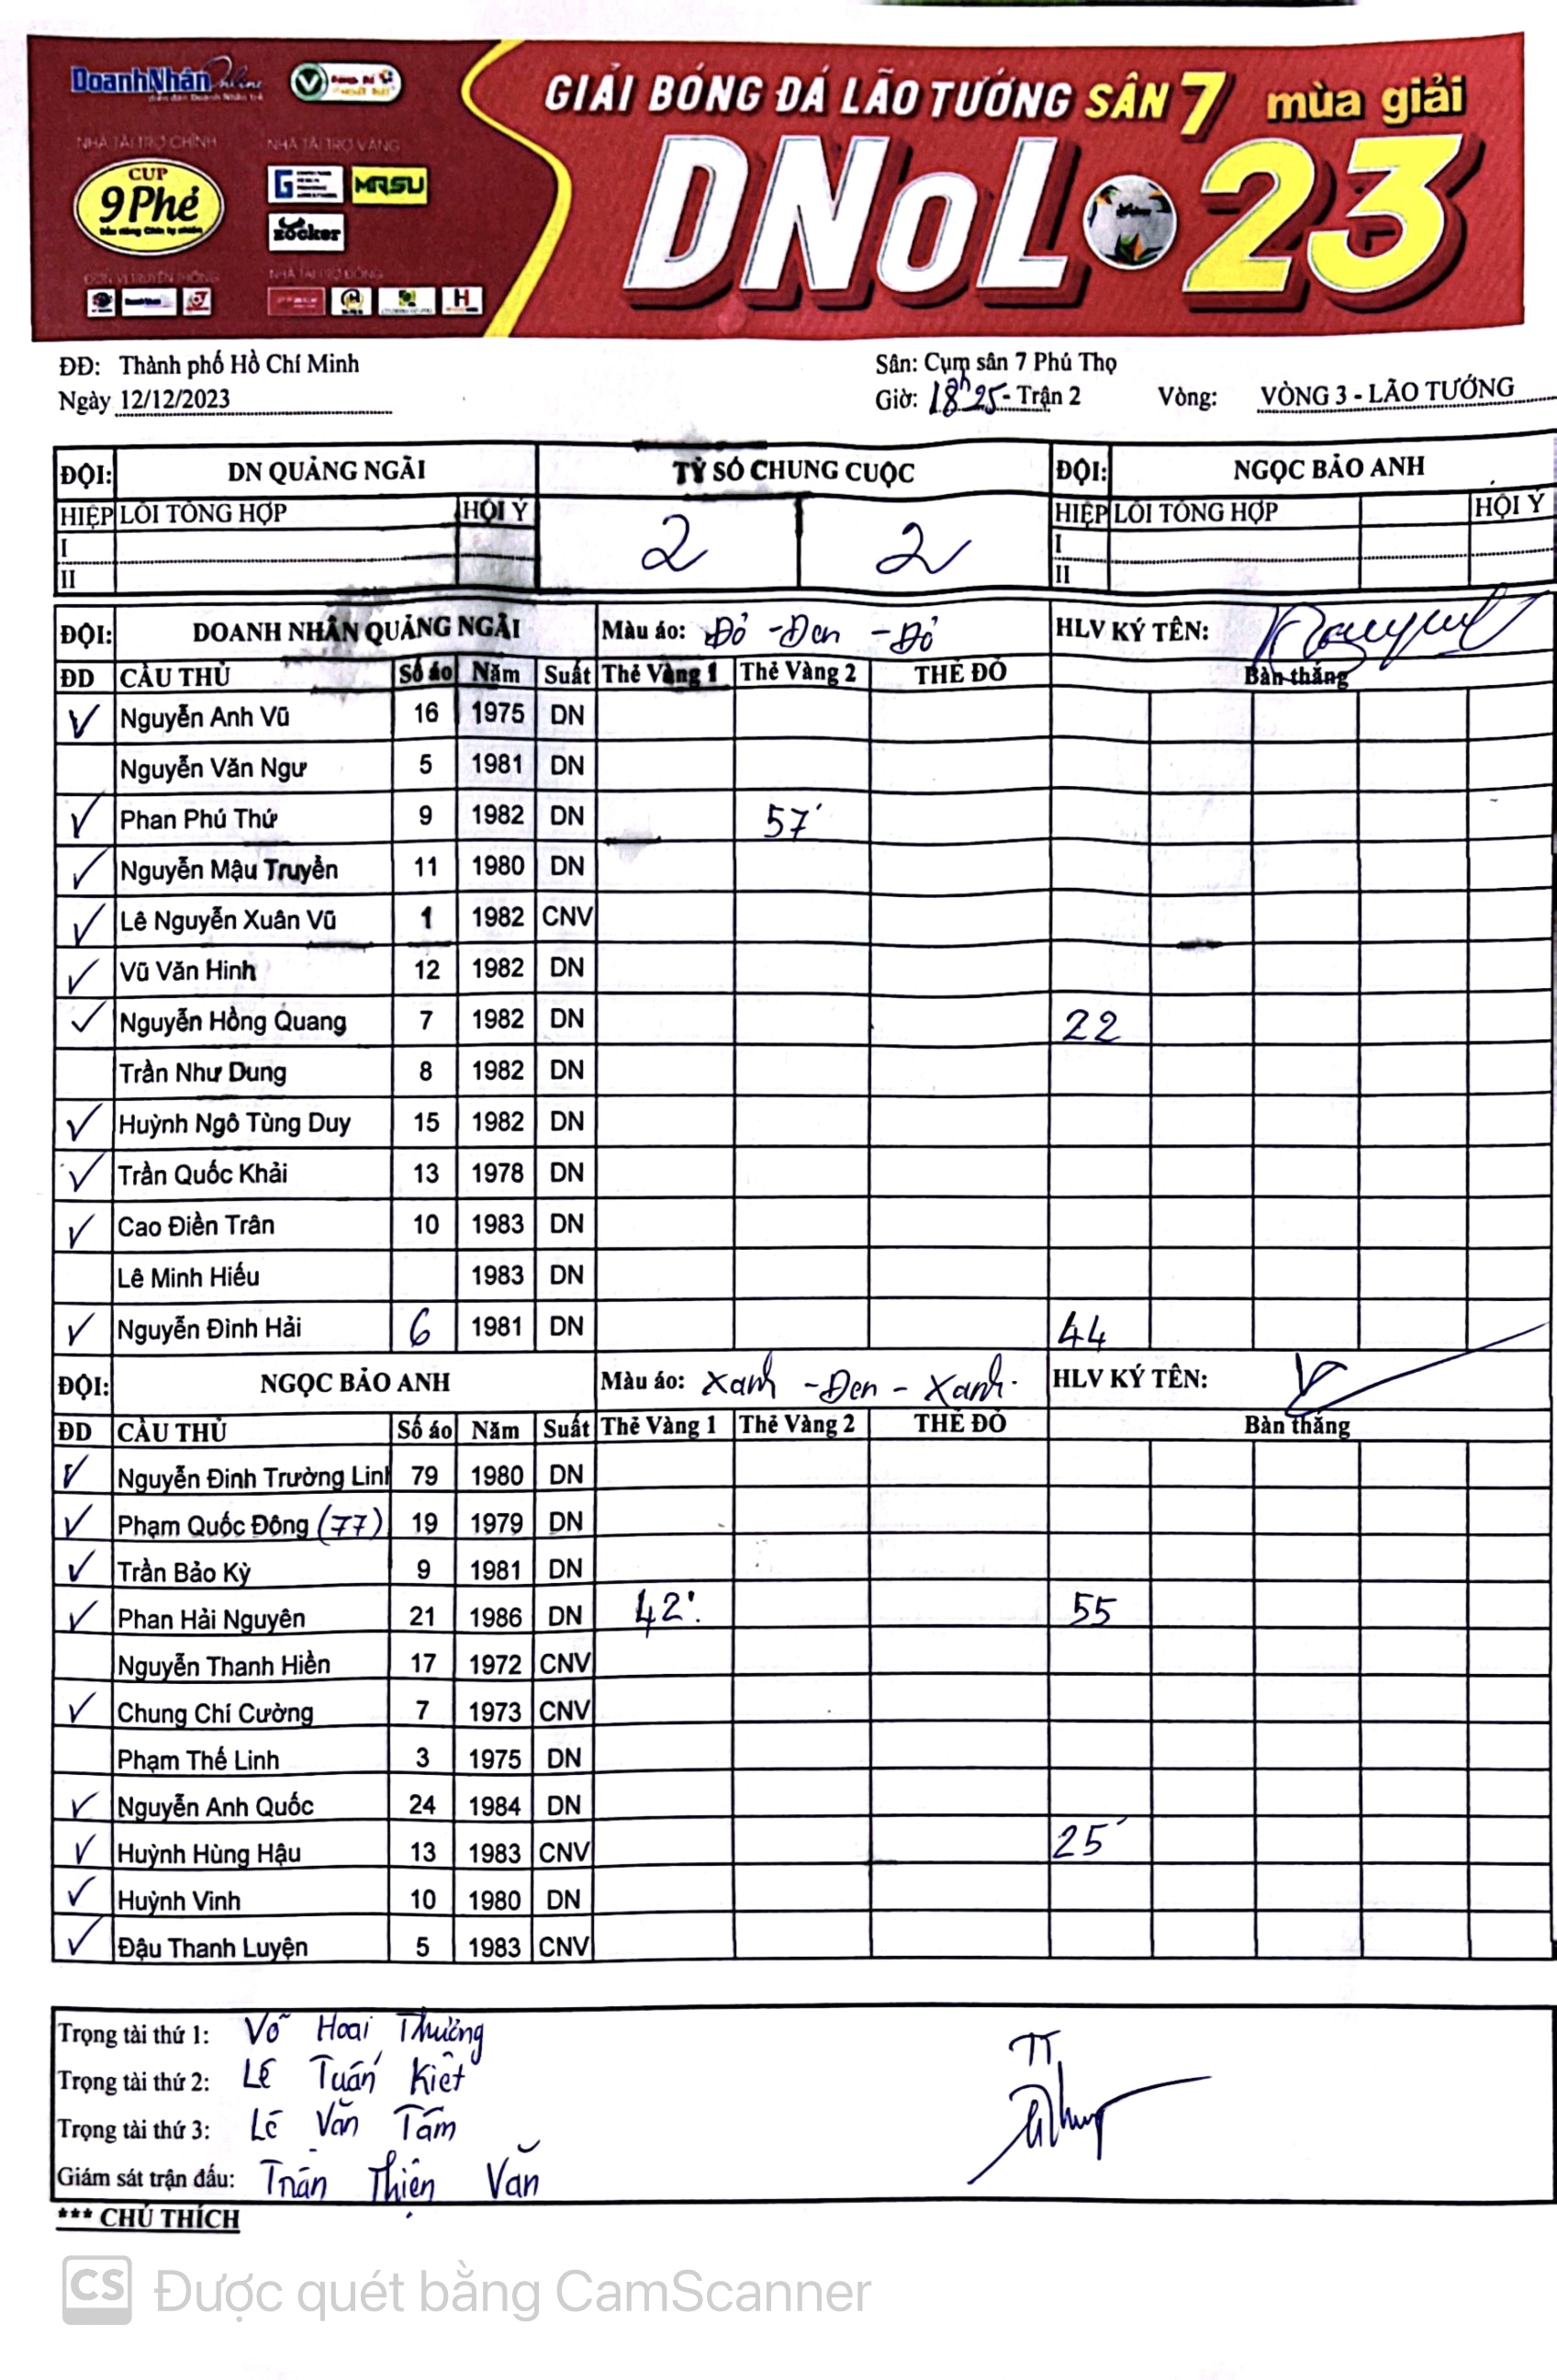 DoanhNhân Online
GIẢI BÓNG ĐÁ LÃO TƯỚNG SÂN 7 mùa giải
DNOL 23
NHÀ TÀI TRỢ CHÍNH NHÀ TÀI TRỢ VÀNG
CUP
9 Phẻ
MRSU
zocker
ĐƠN VỊ TRUYỀN THÔNG NHÀ TÀI TRỢ ĐỒNG
ĐĐ: Thành phố Hồ Chí Minh Sân: Cụm sân 7 Phú Thọ
Ngày 12/12/2023 Giờ: 18h25 - Trận 2 Vòng: VÒNG 3 - LÃO TƯỚNG
ĐỘI: DN QUẢNG NGÃI TỶ SỐ CHUNG CUỘC ĐỘI: NGỌC BẢO ANH
HIỆP LỖI TỔNG HỢP HỘI Ý 2 2 HIỆP LỖI TỔNG HỢP HỘI Ý
I I
II II
ĐỘI: DOANH NHÂN QUẢNG NGÃI Màu áo: Đỏ - Đen - Đỏ HLV KÝ TÊN:
ĐD CẦU THỦ Số áo Năm Suất Thẻ Vàng 1 Thẻ Vàng 2 THẺ ĐỎ Bàn thắng
✓ Nguyễn Anh Vũ 16 1975 DN
Nguyễn Văn Ngư 5 1981 DN
✓ Phan Phú Thứ 9 1982 DN 57'
✓ Nguyễn Mậu Truyền 11 1980 DN
✓ Lê Nguyễn Xuân Vũ 1 1982 CNV
✓ Vũ Văn Hinh 12 1982 DN
✓ Nguyễn Hồng Quang 7 1982 DN 22
Trần Như Dung 8 1982 DN
✓ Huỳnh Ngô Tùng Duy 15 1982 DN
✓ Trần Quốc Khải 13 1978 DN
✓ Cao Điền Trân 10 1983 DN
Lê Minh Hiếu 1983 DN
✓ Nguyễn Đình Hải 6 1981 DN 44
ĐỘI: NGỌC BẢO ANH Màu áo: Xanh - Đen - Xanh. HLV KÝ TÊN:
ĐD CẦU THỦ Số áo Năm Suất Thẻ Vàng 1 Thẻ Vàng 2 THẺ ĐỎ Bàn thắng
✓ Nguyễn Đình Trường Linh 79 1980 DN
✓ Phạm Quốc Đông (77) 19 1979 DN
✓ Trần Bảo Kỳ 9 1981 DN
✓ Phan Hải Nguyên 21 1986 DN 42'. 55
Nguyễn Thanh Hiền 17 1972 CNV
✓ Chung Chí Cường 7 1973 CNV
Phạm Thế Linh 3 1975 DN
✓ Nguyễn Anh Quốc 24 1984 DN
✓ Huỳnh Hùng Hậu 13 1983 CNV 25'
✓ Huỳnh Vinh 10 1980 DN
✓ Đậu Thanh Luyện 5 1983 CNV
Trọng tài thứ 1: Võ Hoài Thương
Trọng tài thứ 2: Lê Tuấn Kiệt TT
Trọng tài thứ 3: Lê Văn Tâm
Giám sát trận đấu: Trần Thiện Văn
*** CHÚ THÍCH
CS Được quét bằng CamScanner